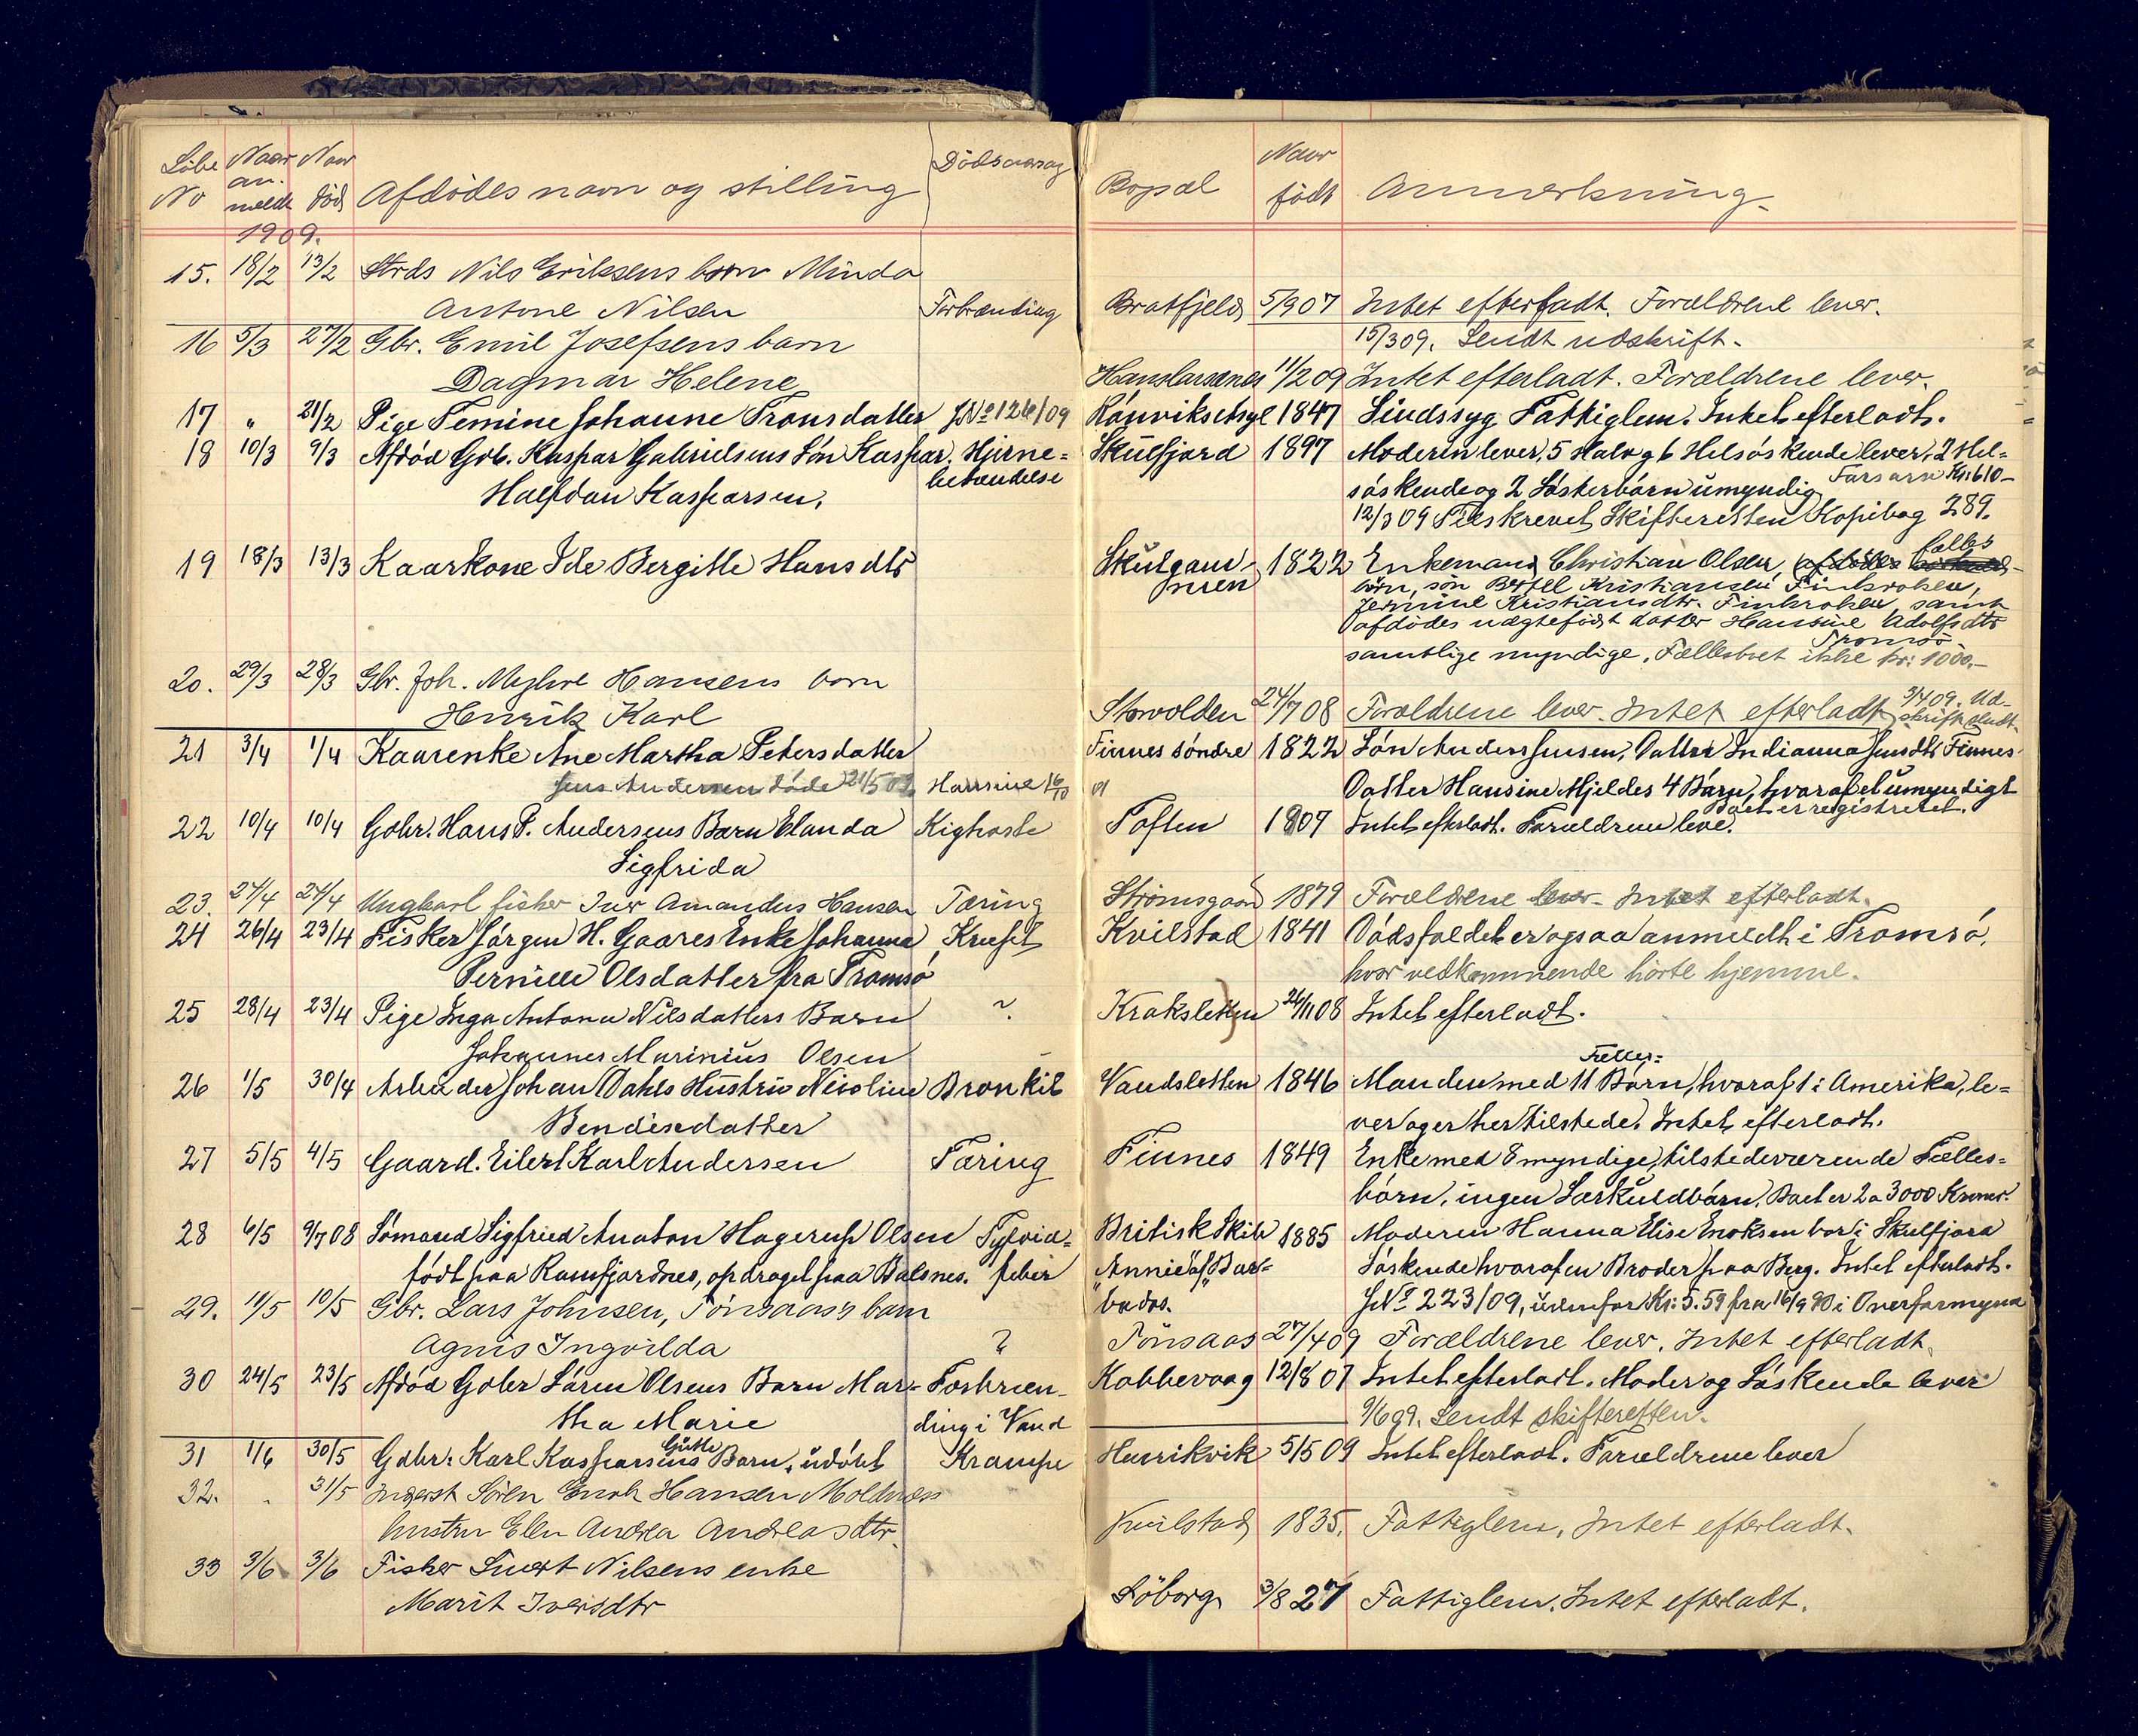 Löbe No
Naar anmeldt
Naar död
Afdödes navn og stilling
Dödsaarsag
Bopæl
Naar födt
Anmerkning.
1909.
15. 18/2 13/2 Strds Nils Eriksens barn Minda
Antone Nilsen Forbrænding Bratfjeld 5/907 Intet efterladt. Forældrene lever.
16 5/3 27/2 Gbr. Emil Josefsens barn 15/309. Sendt udskrift.
Dagmar Helene Hanslarsanes 11/209 Intet efterladt. Forældrene lever.
17 " 21/2 Pige Femine Johanne Tronsdatter JNo 126/09 Rönvik Asyl 1847 Sindssyg Fattiglem. Intet efterladt.
18 10/3 9/3 Afdöd Gbr. Kaspar Gabrielsens Sön Kaspar Hjerne= Skulfjord 1897 Moderen lever, 5 Halv og 6 Helsöskende lever, 2 Hel=
Halfdan Kasparsen. betændelse söskende og 2 Söskerbörn umyndig Farsarv Kr. 610-
12/3 09 Tilskrevet Skifteretten Kopibog 289.
19 18/3 13/3 Kaarkone Ide Bergitte Hansdtr Skulgam- 1822 Enkemand Christian Olsen, afdödes fælles
men börn, sön Bertel Kristiansen Finkroken,
Jermine Kristiansdtr. Finkroken, samt
afdödes uægtefödt datter Hansine Adolfsdtr
Tromsö
samtlige myndige, Fællesboet ikke kr: 1000,-
20. 29/3 28/3 Gbr. Joh. Myhre Hansens barn
Henrik Karl Storvolden 24/708 Forældrene lever. Intet efterladt 3/409. Udskrift sendt.
21 3/4 1/4 Kaarenke Ane Martha Petersdatter Finnes söndre 1822 Sön Anders Jensen, Datter Indianna Jensdtr Finnes
Jens Andersen döde 21/5 Hansine Datter Hansine Mjeldes 4 Börn, hvoraf et umyndigt
Boet er registreret.
22 10/4 10/4 Gbr. Hans P. Andersens Barn Elanda Kighoste Toften 1907 Intet efterladt. Forældrene leve.
Sigfrida
23. 24/4 24/4 Ungkarl fisker Iver Amandus Hansen Tæring Strömsgaard 1879 Forældrene lever. Intet efterladt.
24 26/4 23/4 Fisker Jörgen H. Gaares Enke Johanna Kræft Kvilstad 1841 Dödsfaldet er ogsaa anmeldt i Tromsö,
Pernille Olsdatter fra Tromsö hvor vedkommende hörte hjemme.
25 28/4 23/4 Pige Inga Antona Nilsdatters Barn ? Kraksletten 24/1108 Intet efterladt.
Johannes Marinius Olsen
26 1/5 30/4 Arbeider Johan Dahls Hustru Nicoline Bronkit Vandsletten 1846 Manden med 11 Fælles= Börn, hvoraf 1 i Amerika, le=
Bendixdatter ver og er her tilstede. Intet efterladt.
27 5/5 4/5 Gaard. Eilert Karl Andersen Tæring Finnes 1849 Enke med 8 myndige, tilstedeværende Fælles=
börn, ingen Særkuldbörn. Boet er 2 a 3000 Kroner.
28 6/5 9/708 Sömand Sigfried Anaton Hagerup Olsen Tyfoid= Britisk Skib 1885 Moderen Hanna Elise Enoksen bor i Skulfjord
födt paa Ramfjordnes, opdraget paa Balsnes. feber "Annie" af Bar= Söskende hvoraf en Broder paa Berg. Intet efterladt.
bados. JNo 223/09, udenfor Kr: 5.59 fra 16/9 90 i Overformynd
29. 11/5 10/5 Gbr. Lars Johnsen, Tönsaas's barn
Agnis Ingvilda ? Tönsaas 27/409 Forældrene lever. Intet efterladt.
30 24/5 23/5 Afdöd Gbr Sören Olsens Barn Mar= Forbræn- Kobbevaag 12/8 07 Intet efterladt. Moder og Söskende lever
tha Marie ding i Vand 9/609. Sendt skifteretten.
31 1/6 30/5 Gdbr. Karl Kasparsens Gutte Barn, udöbt Krampe Henrikvik 5/509 Intet efterladt. Forældrene lever
32. . 31/5 Inderst Sören Enok Hansen Moldnæs
hustru Elen Andrea Andreasdtr. Kvilstad 1835. Fattiglem. Intet efterladt.
33 3/6 3/6 Fisker Sivert Nilsens enke
Marit Iversdtr Söborg 3/8 27 Fattiglem. Intet efterladt.